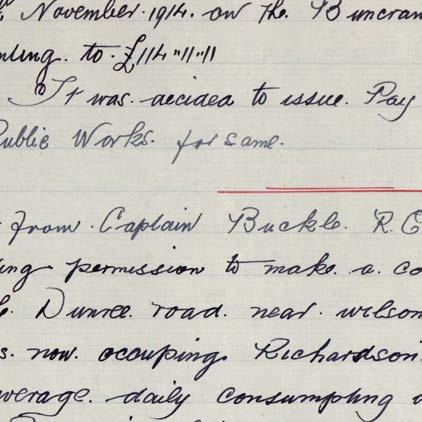 November. 1914. on the Buncran
nting. to. £114"11"11
It was. decided to issue. Pay
Public Works. for same.
from. Captain Buckle. R. E
ing permission to make. a. co
Dunree. road. near. wilson
s. now. occuping. Richardson
average. daily consumpting